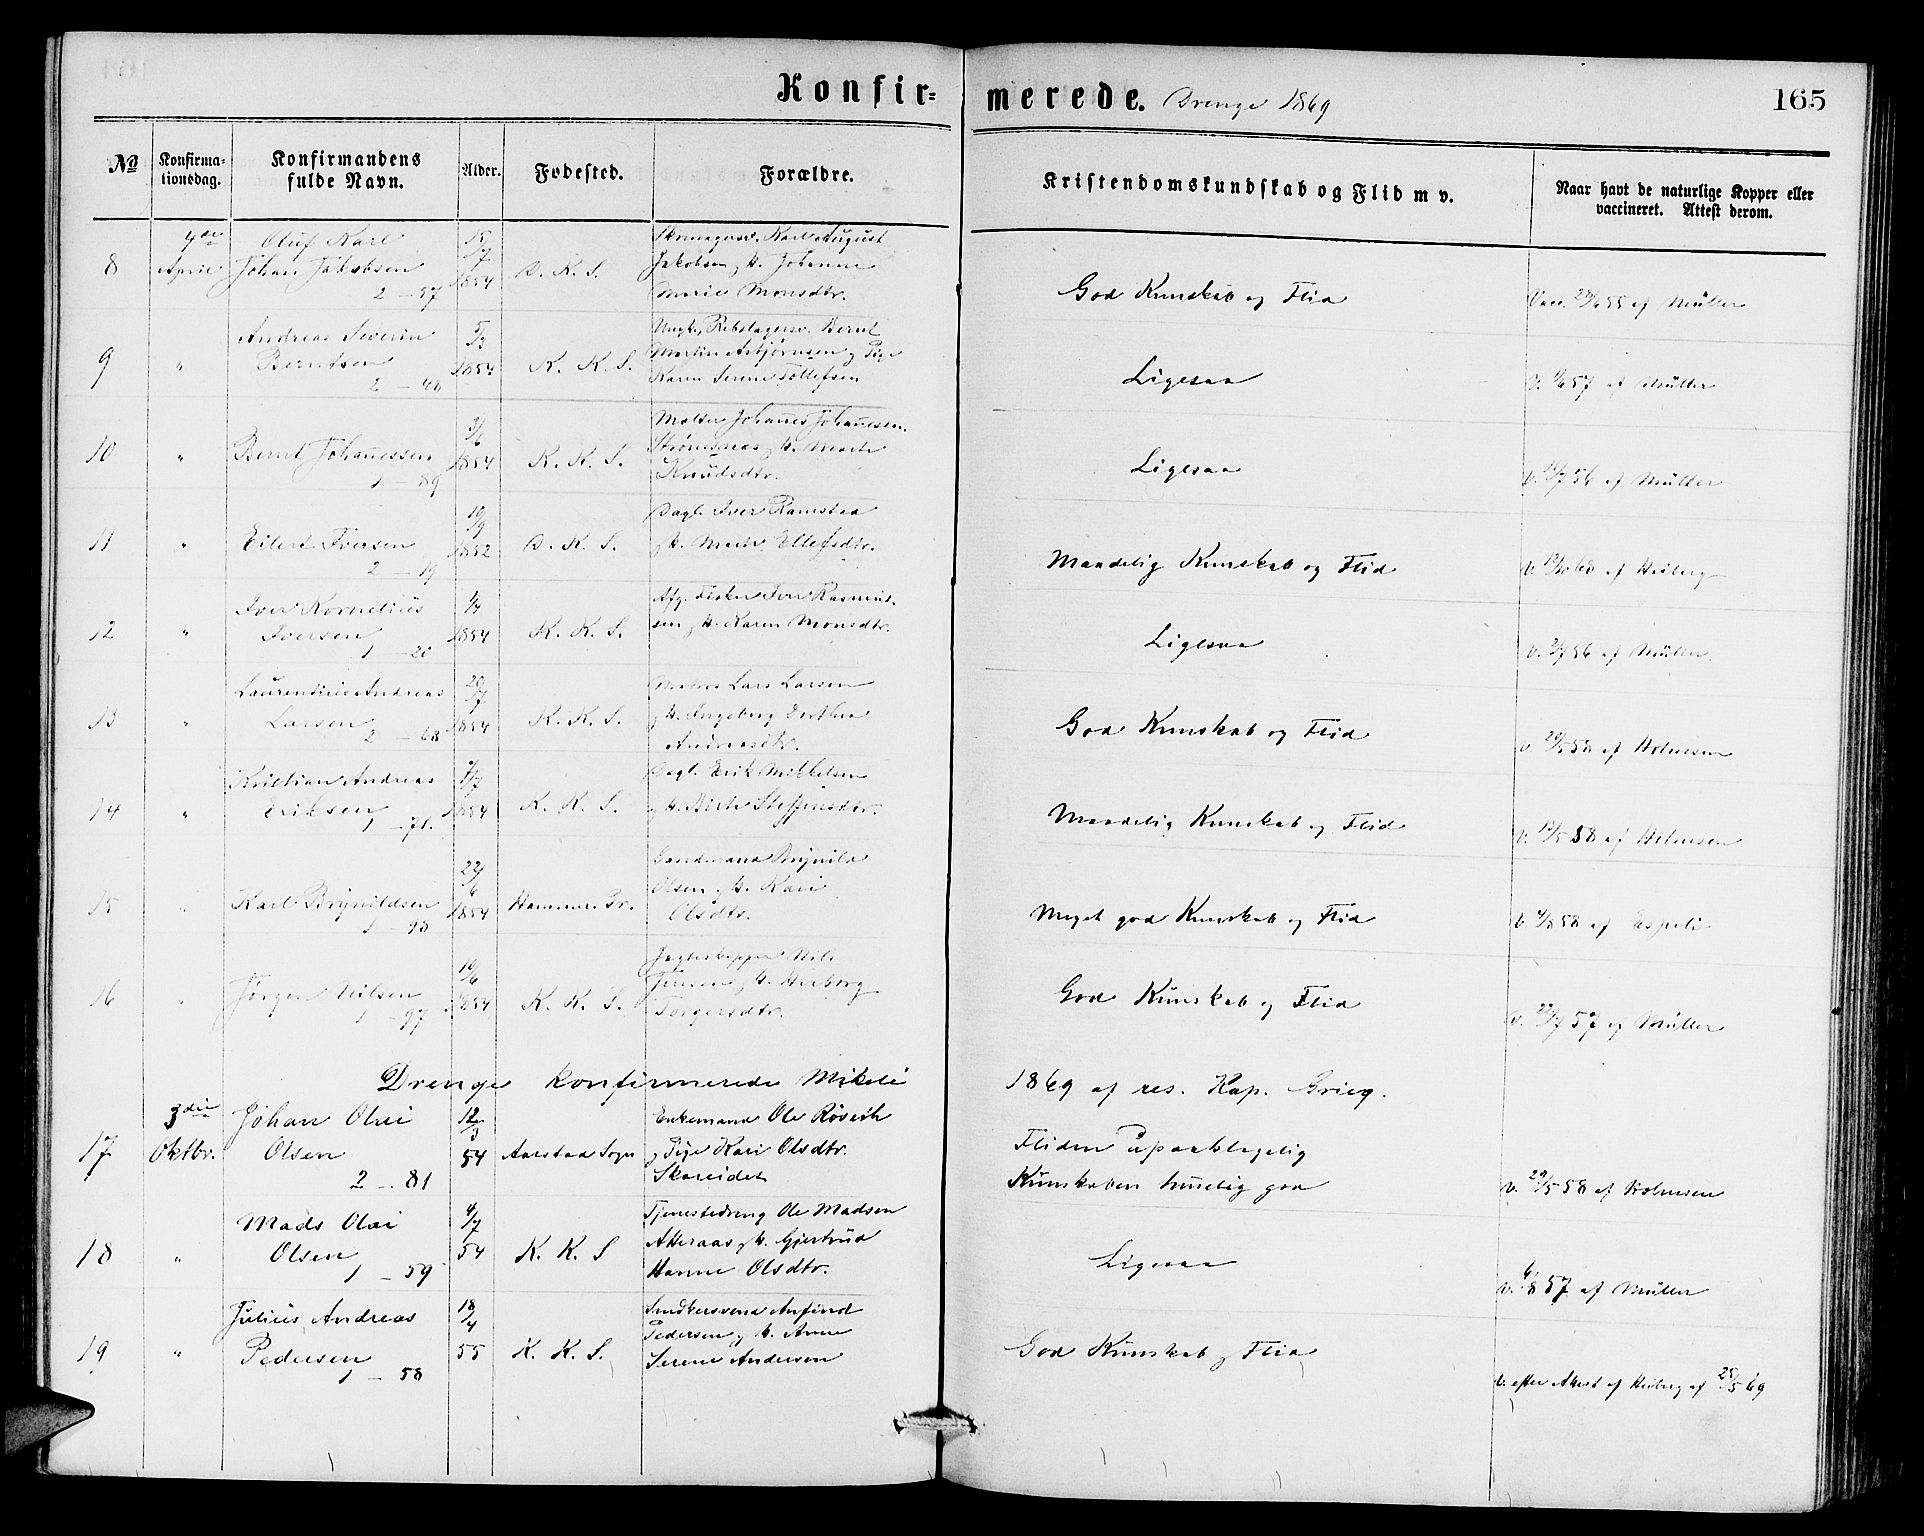 Konfirmerede. Drenge 1869
165
No
Konfirmationsdag.
Konfirmandens fulde Navn.
Alder.
Fødested.
Forældre.
Kristendomskundskab og Flid m v.
Naar havt de naturlige Kopper eller vaccineret. Attest derom.
8
4de April
Oluf Karl
Johan Jakobsen
2 – 57
1854
D. K. S.
Karl August
Jakobsen, H. Johanne
Marie Monsdtr.
God Kunskab og Flid
Vacc. 55 af Müller
9
"
Andreas Severin
Berntsen
5/3
1854
K. K. S.
Ungk. Rebslagersv. Bernt
Martin Asbjørnsen og Pige
Karen Serene Tollefsen
Ligesaa
V. 57 af Müller
10
"
Bernt Johannessen
1 – 89
3/6
1854
K. K. S.
Johannes Johannessen
Strømsnes, H. Marte
Knudsdtr.
Ligesaa
V. 56 af Müller
11
"
Eilert Iversen
2 – 19
10/9
1852
D. K. S.
Dagl. Iver Ramstad
H. Marte Ellefsdtr.
Maadelig Kunskab og Flid
V. 68 af Heiberg
12
"
Iver Kornelius
Iversen
1 – 20
1854
K. K. S.
Afg. Fisker Iver Rasmus-
sen, H. Karen Monsdtr.
Ligesaa
V. 56 af Müller
13
"
Laurentius Andreas
Larsen
2 – 68
20/7
1854
K. K. S.
Matros Lars Larsen
H. Ingeborg Dorthea
Andreasdtr.
God Kunskab og Flid
V. 29/5 58 af Holmsen
14
"
Kristian Andreas
Eriksen
1 – 71.
1854
K. K. S.
Dagl. Erik Mikkelsen
H. Birte Steffensdtr.
Maadelig Kunskab og Flid
V. 58 af Holmsen
15
"
Karl Brynildsen
1 – 93
22/6
1854
Hammer Pr.
Gaardmand Brynild
Olsen, H. Kari
Olsdtr.
Meget god Kunskab og Flid
V. 4/8 58 af Espeli
16
"
Jørgen Nilsen
1 – 97
10/6
1854
K. K. S.
Jagteskipper Nils
H. Herborg
Torgersdtr.
God Kunskab og Flid
V. 22/7 57 af Müller
Drenge konfirmerede Mikeli 1869 af res. Kap. Grieg.
17
3die Oktbr.
Johan Olai
Olsen
2 – 81
12/3
54
Aarstad Sogn
Enkemand Ole Røseth
, Pige Kari Olsdtr.
Skareidet
Fliden upaaklagelig
Kunskaben temelig god
V. 29/5 58 af Holmsen
18
"
Mads Olai
Olsen
1 – 59
4/7
54
K. K. S
Tjenestedreng Ole Madsen
Atteraas, H. Gjertrud
Hanne Olsdtr.
Ligesaa
V. 6/8 57 af Müller
19
"
Julius Andreas
Pedersen
1 – 58
18/4
55
K. K. S.
Snedkersvend Anfind
Pedersen, H. Anne
Serene Andersen
God Kunskab og Flid
V. efter Attest af Heiberg af 25/5 69